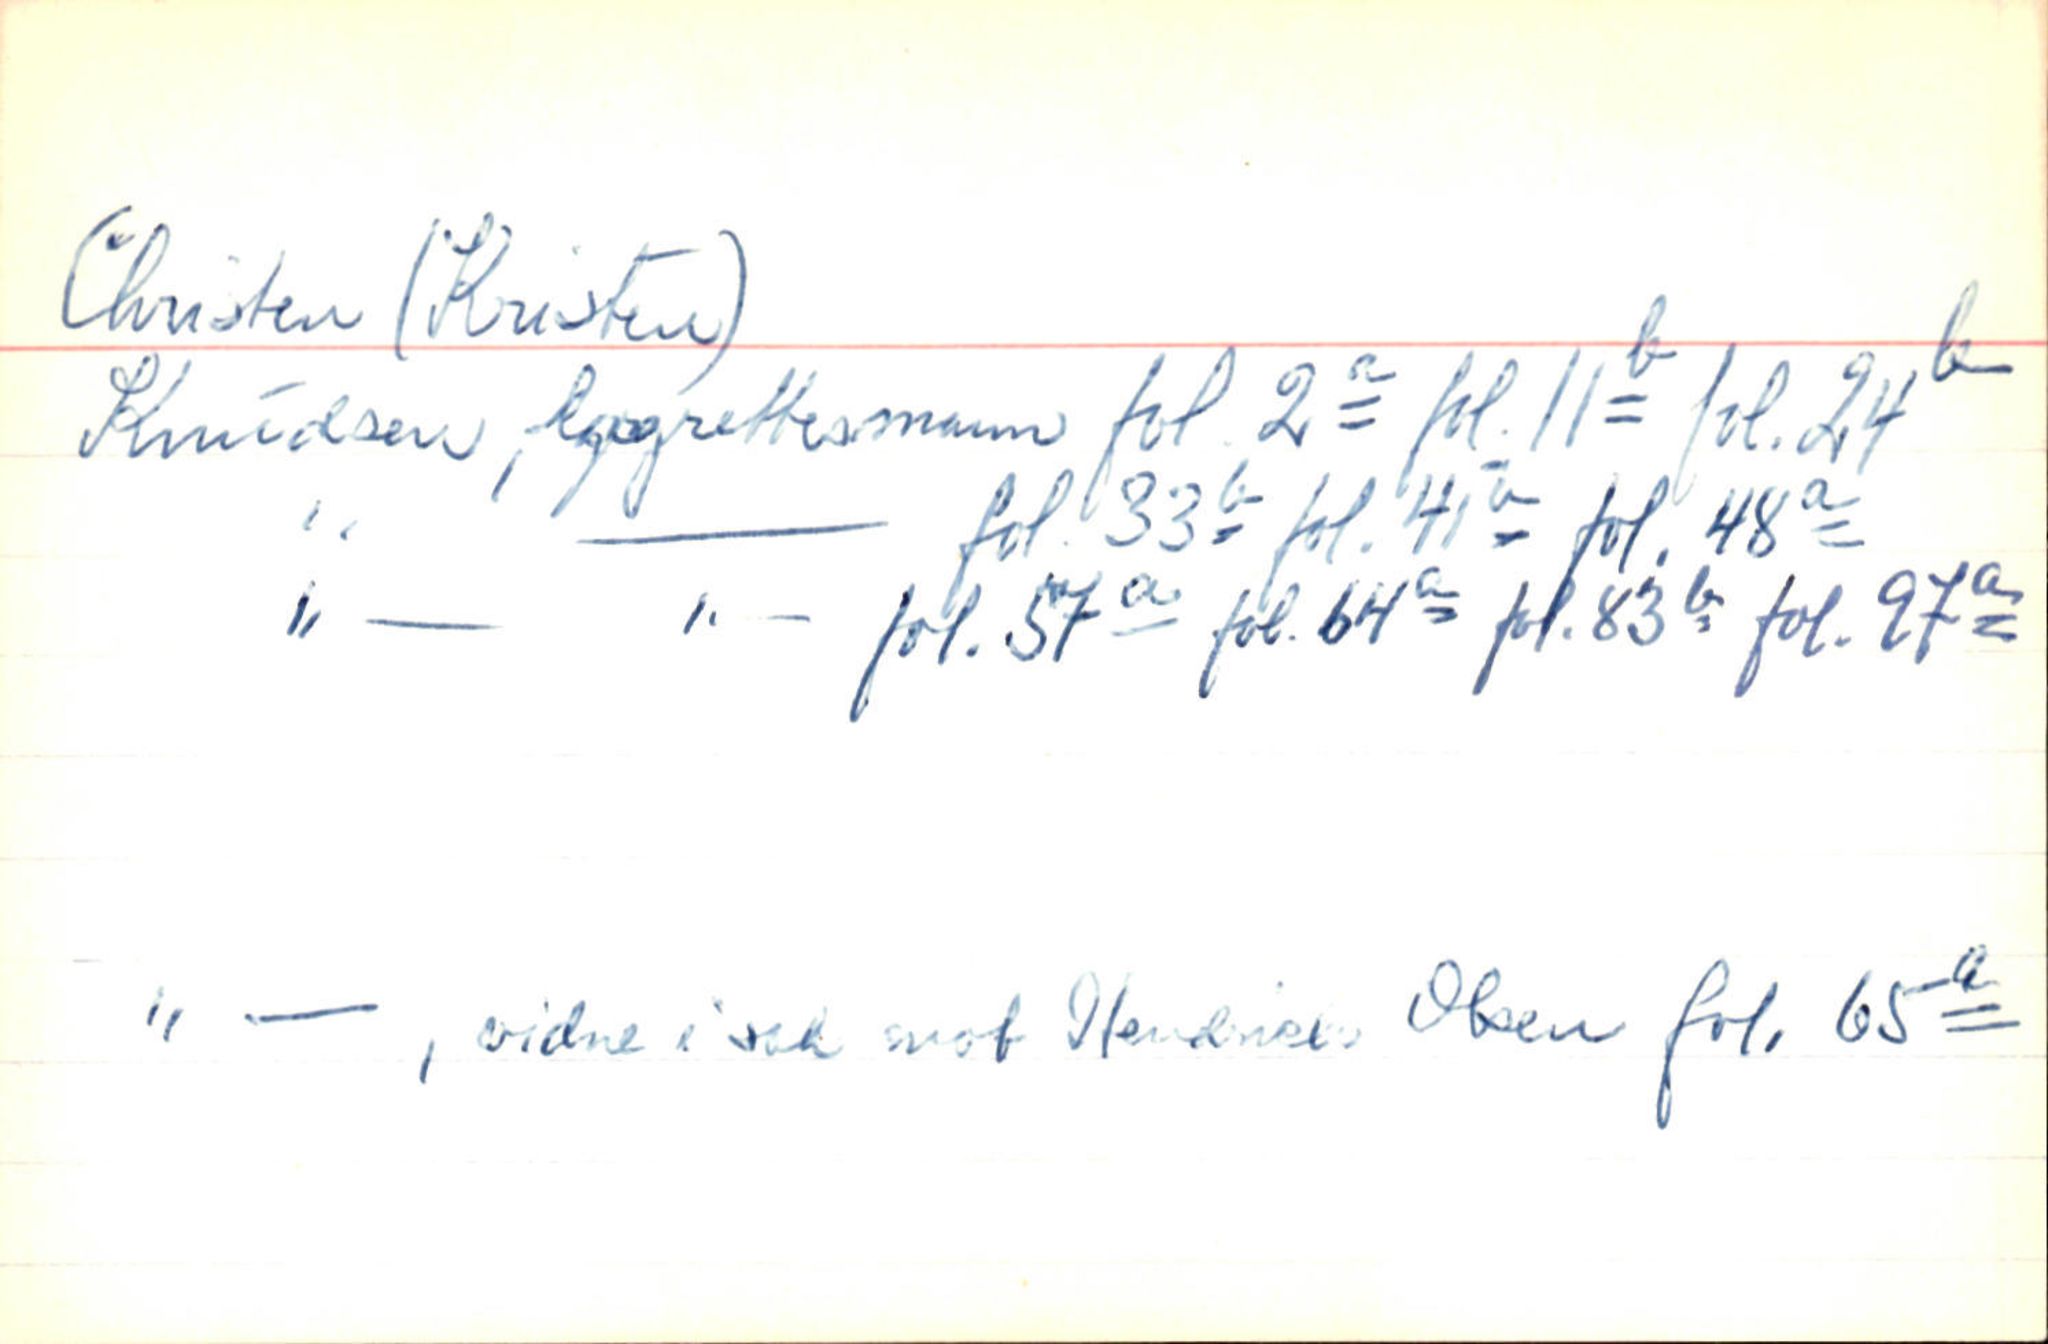 Christen (Kristen)
Knudsen, lagrettesmann fol. 2a fol. 11b fol. 24b
" — fol. 33b fol. 41b fol. 48a
" — " — fol. 57a fol. 64a fol. 83b fol. 97a
" — , vidne i sak mot Hendrick Olsen fol. 65a